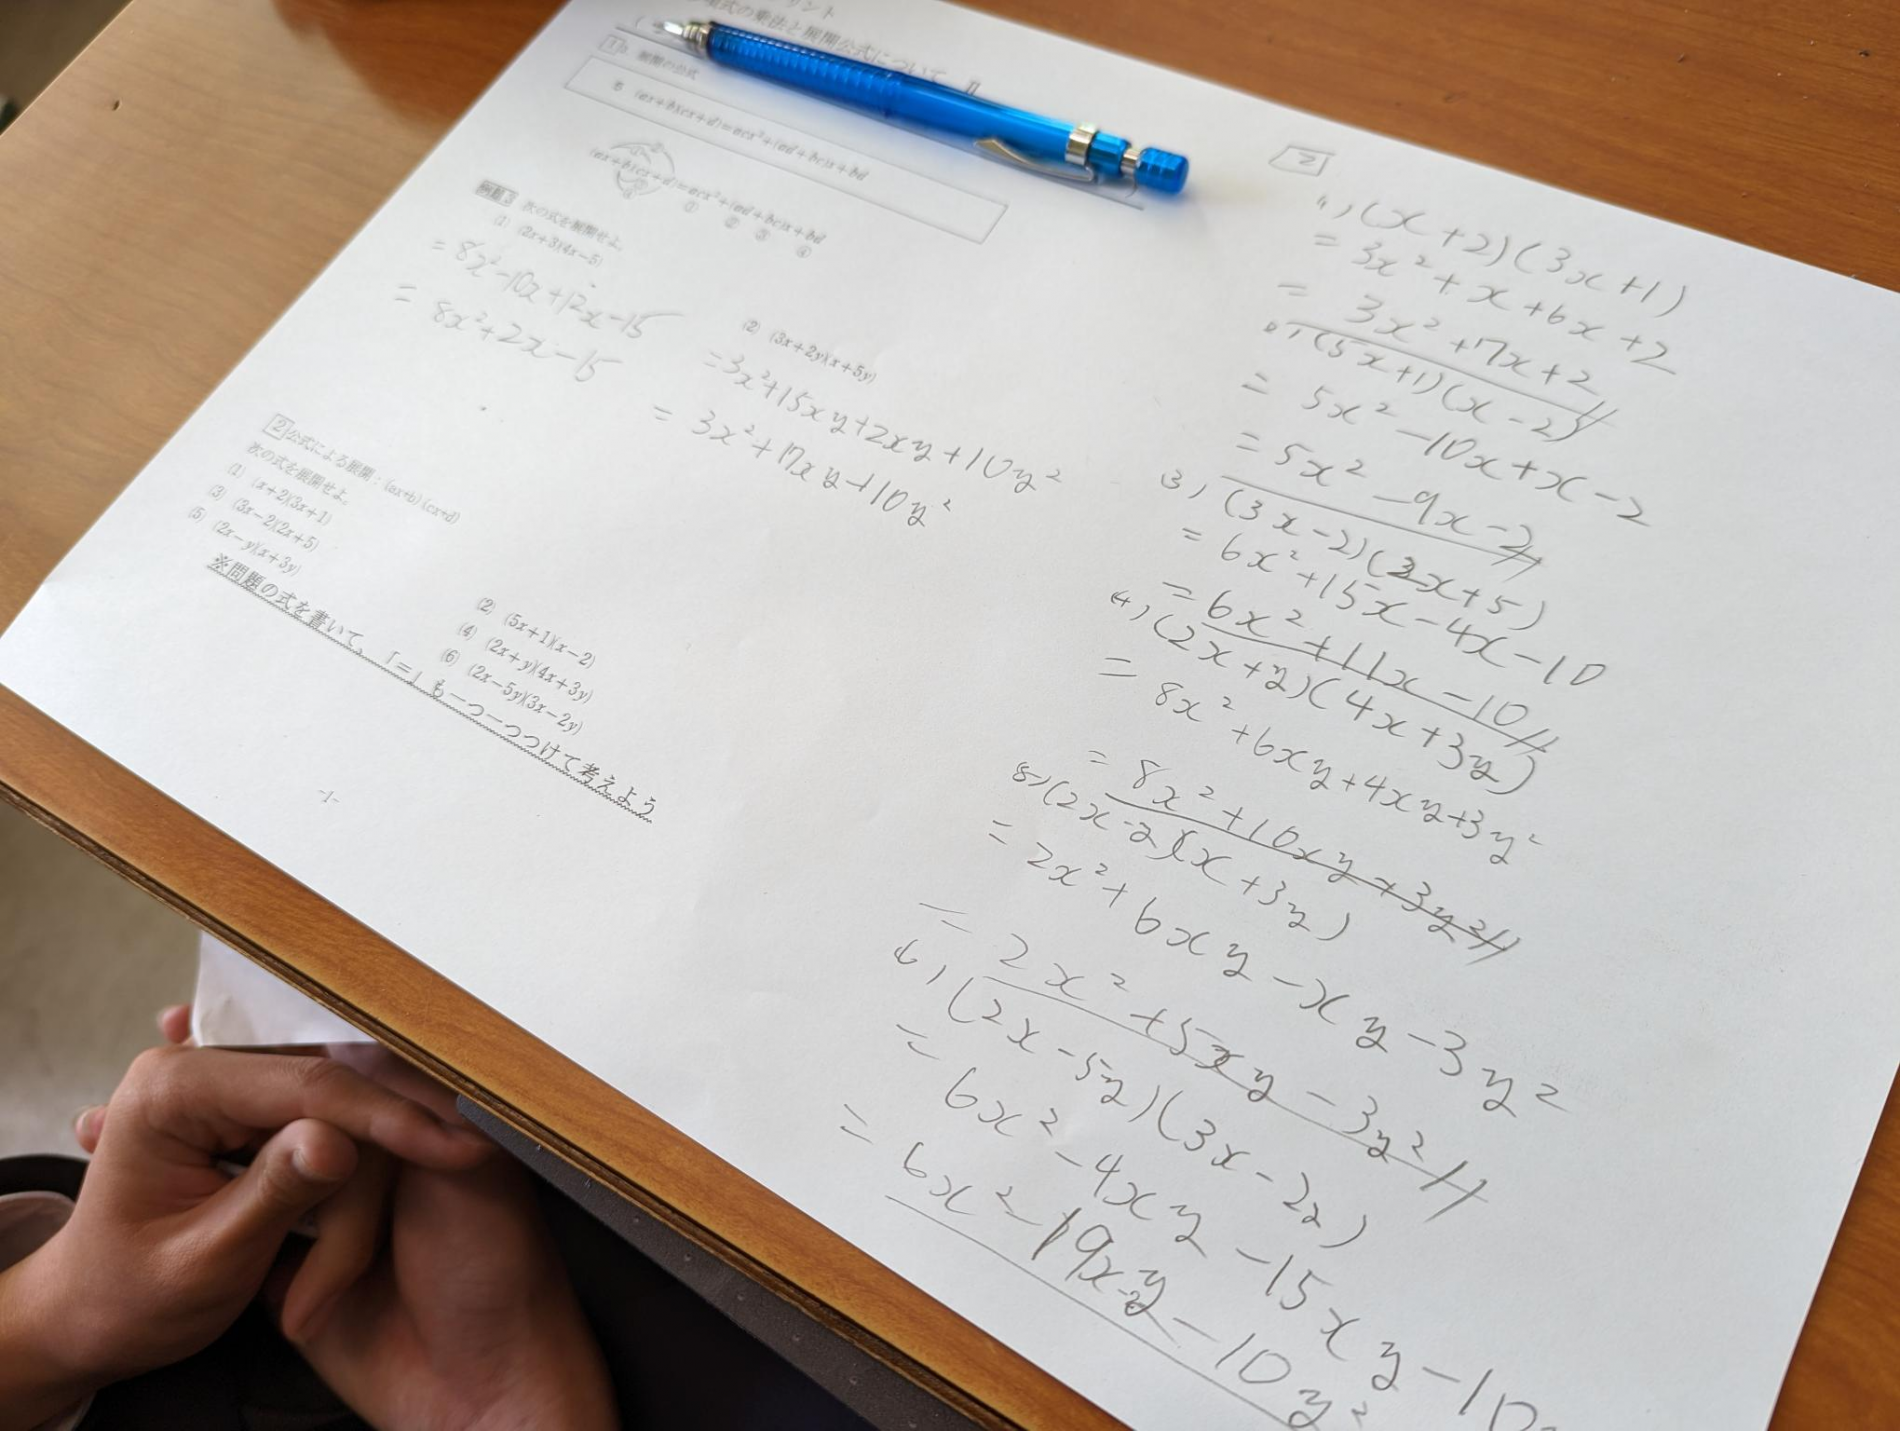 式の乗法と展開公式について Ⅱ
1 展開の公式
(ax+b)(cx+d)=acx²+(ad+bc)x+bd
(ax+b)(cx+d)=acx²+(ad+bc)x+bd
① ② ③ ④
例題3 次の式を展開せよ。
(1) (2x+3)(4x-5)
=8x²-10x+12x-15
=8x²+2x-15
(2) (3x+2y)(x+5y)
=3x²+15xy+2xy+10y²
=3x²+17xy+10y²
2 公式による展開:(ax+b)(cx+d)
次の式を展開せよ。
(1) (x+2)(3x+1)
(2) (5x+1)(x-2)
(3) (3x-2)(2x+5)
(4) (2x+y)(4x+3y)
(5) (2x-y)(x+3y)
(6) (2x-5y)(3x-2y)
※問題の式を書いて、「=」も一つ一つつけて考えよう
-1-
2
1) (x+2)(3x+1)
=3x²+x+6x+2
=3x²+7x+2
2) (5x+1)(x-2)
=5x²-10x+x-2
=5x²-9x-2
3) (3x-2)(2x+5)
=6x²+15x-4x-10
=6x²+11x-10
4) (2x+y)(4x+3y)
=8x²+6xy+4xy+3y²
=8x²+10xy+3y²
5) (2x-y)(x+3y)
=2x²+6xy-xy-3y²
=2x²+5xy-3y²
6) (2x-5y)(3x-2y)
=6x²-4xy-15xy-10
=6x²-19xy-10y²